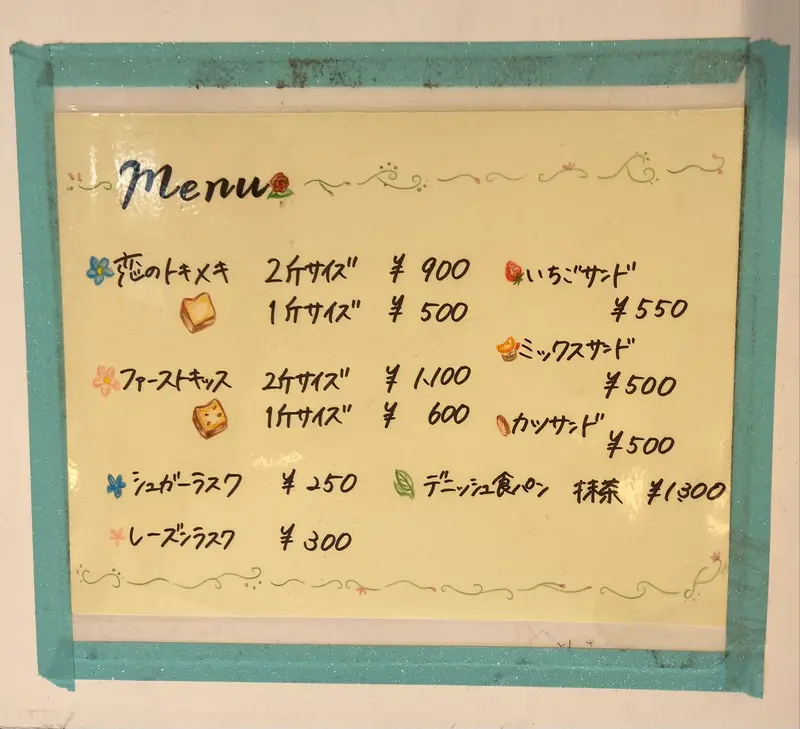 Menu
恋のトキメキ 2斤サイズ ¥900
1斤サイズ ¥500
ファーストキッス 2斤サイズ ¥1,100
1斤サイズ ¥600
シュガーラスク ¥250
レーズンラスク ¥300
いちごサンド
¥550
ミックスサンド
¥500
カツサンド
¥500
デニッシュ食パン 抹茶 ¥1,300